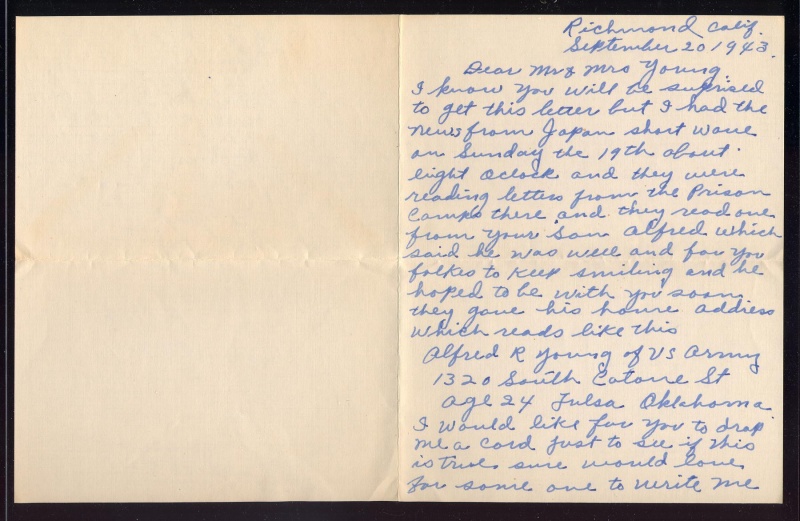 Richmond Calif.
September 20 1943.
Dear Mr & Mrs Young.
I know you will be suprised
to get this letter but I had the
news from Japan short wave
on Sunday the 19th about
eight oclock and they were
reading letters from the Prison
Camps there and they read one
from your Son Alfred which
said he was well and for you
folkes to keep smiling and he
hoped to be with you soon
they gave his home address
which reads like this
Alfred R Young of US Army
1320 South St
age 24 Tulsa Oklahoma
I would like for you to drop
me a card just to see if this
is true sure would love
for some one to write me